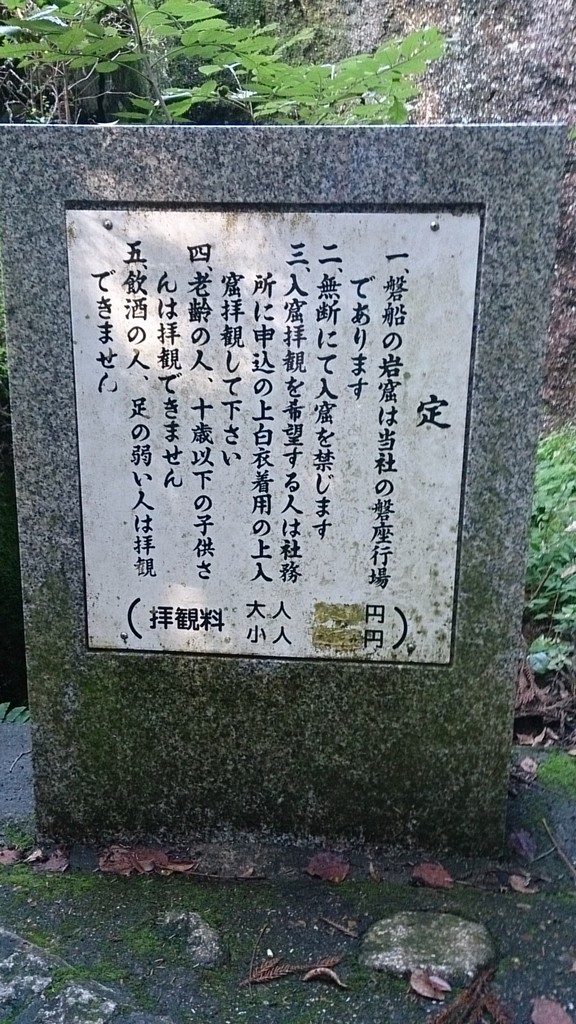 定
一、磐船の岩窟は当社の磐座行場
であります
二、無断にて入窟を禁じます
三、入窟拝観を希望する人は社務
所に申込の上白衣着用の上入
窟拝観して下さい
四、老齢の人、十歳以下の子供さ
んは拝観できません
五、飲酒の人、足の弱い人は拝観
できません
(拝観料 大人 円
小人 円)